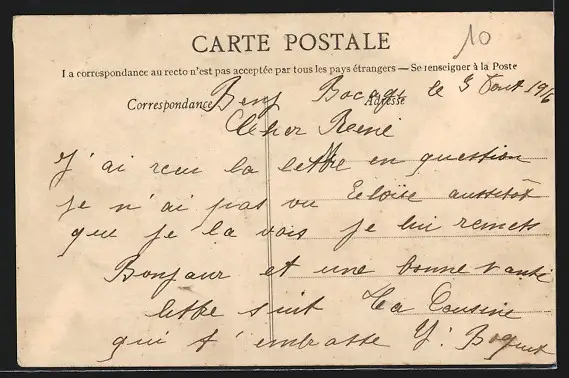 10
CARTE POSTALE
La correspondance au recto n'est pas acceptée par tous les pays étrangers — Se renseigner à la Poste
Correspondance Adresse
Beny Bocage le 3 Aout 1916
Cher René
J'ai recu la lettre en question
je n'ai pas vu Éloïse aussitôt
que je la vois je lui remets
Bonjour et une bonne santé
lettre suit Ta Cousine
qui t'embrasse Y. Boquet